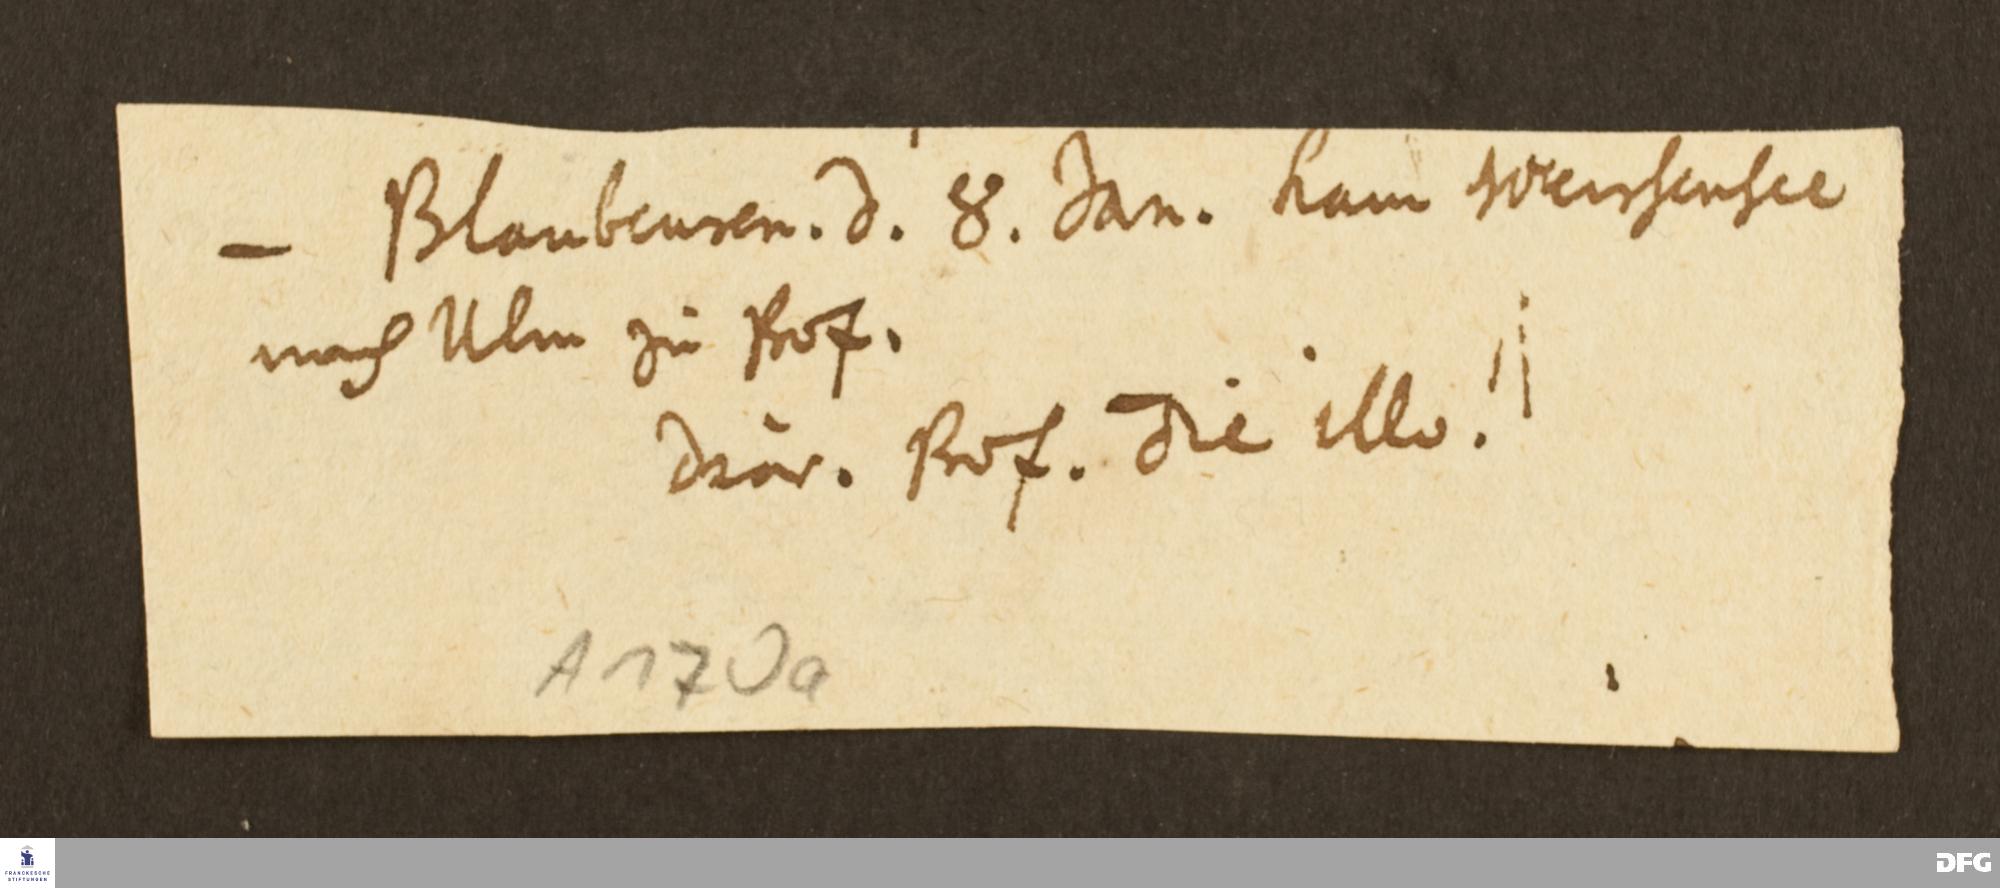 – Blaubeuren. d. 8. Jan. kam Weissensee
nach Ulm zu Prof.
Diar. Prof. die illo.
A 170a
FRANCKESCHE
STIFTUNGEN
DFG